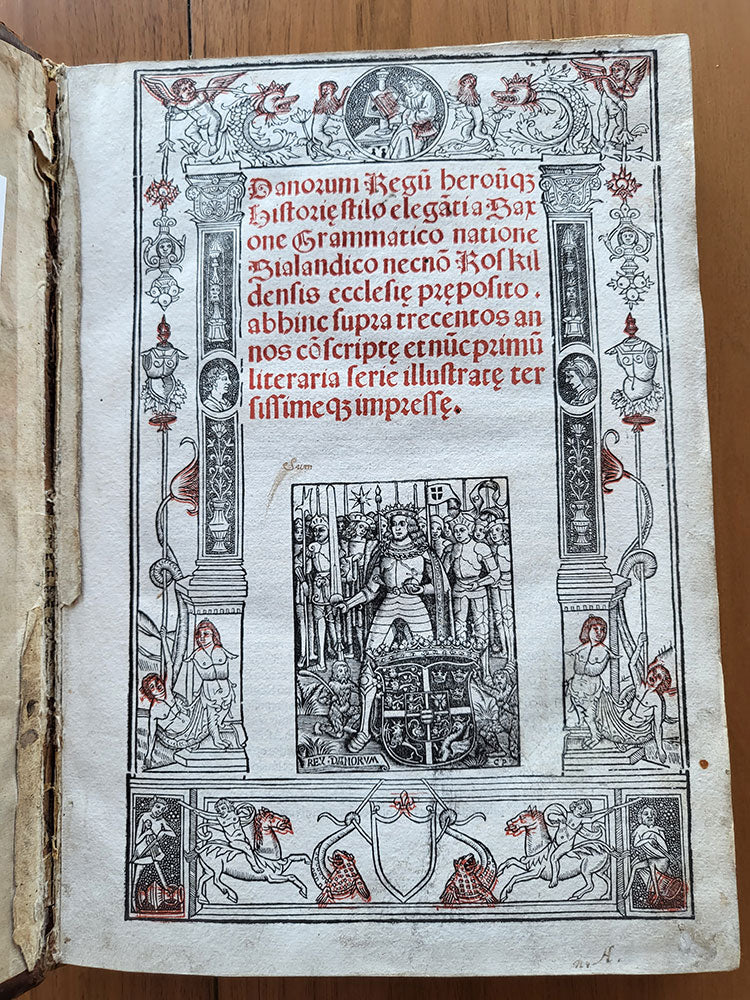 Danorum Regū heroūqꝫ
Historię stilo elegāti a Sax
one Grammatico natione
Sialandico necnō Roskil
densis ecclesię pręposito.
abhinc supra trecentos an
nos cōscriptę et nūc primū
literaria serie illustratę ter
sissimeqꝫ impressę.
Sum
REX·DANORVM
n. H.